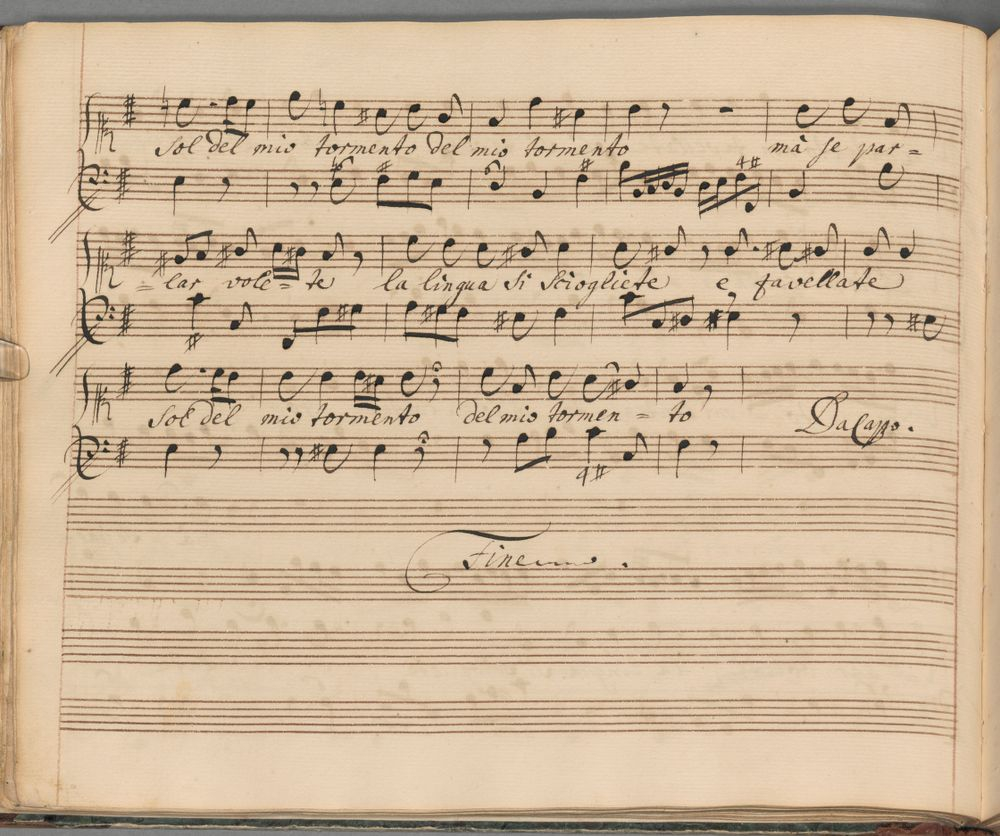 Sol del mio tormento del mio tormento mà se par=
=lar vole=te la lingua si sciogliete e favellate
Sol del mio tormento del mio tormen=to Da Capo.
Fine.